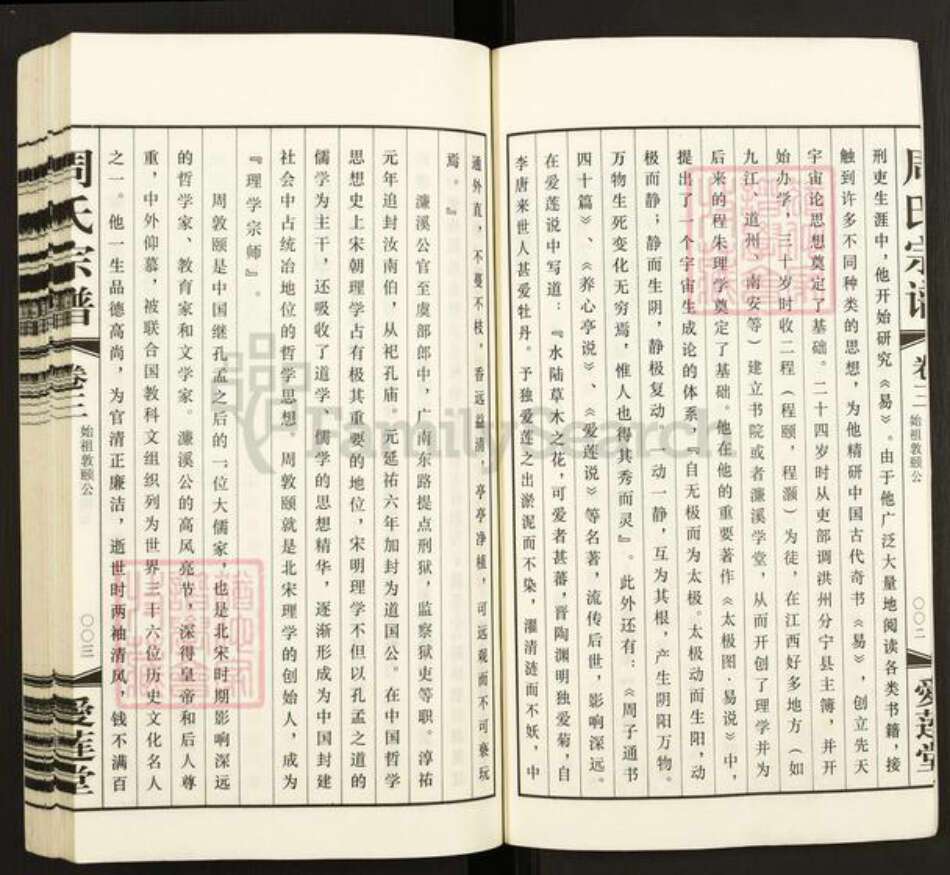 周氏宗谱
卷三
始祖敦颐公
〇〇二
爱莲堂
刑吏生涯中，他开始研究《易》。由于他广泛大量地阅读各类书籍，接
触到许多不同种类的思想，为他精研中国古代奇书《易》，创立先天
宇宙论思想奠定了基础。二十四岁时从吏部调洪州分宁县主簿，并开
始办学，三十岁时收二程（程颐，程灏）为徒，在江西好多地方（如
九江、道州、南安等）建立书院或者濂溪学堂，从而开创了理学并为
后来的程朱理学奠定了基础。他在他的重要著作《太极图·易说》中，
提出了一个宇宙生成论的体系，『自无极而为太极。太极动而生阳，动
极而静；静而生阴，静极复动。一动一静，互为其根，产生阴阳万物。
万物生死变化无穷焉，惟人也得其秀而灵』。此外还有：《周子通书
四十篇》、《养心亭说》、《爱莲说》等名著，流传后世，影响深远。
在爱莲说中写道：『水陆草木之花，可爱者甚蕃，晋陶渊明独爱菊，自
李唐来世人甚爱牡丹。予独爱莲之出淤泥而不染，濯清涟而不妖，中
通外直，不蔓不枝，香远益清，亭亭净植，可远观而不可亵玩
焉。』
濂溪公官至虞部郎中，广南东路提点刑狱，监察狱吏等职。淳祐
元年追封汝南伯，从祀孔庙。元延祐六年加封为道国公。在中国哲学
思想史上宋朝理学占有极其重要的地位，宋明理学不但以孔孟之道的
儒学为主干，还吸收了道学、儒学的思想精华，逐渐形成为中国封建
社会中占统治地位的哲学思想。周敦颐就是北宋理学的创始人，成为
『理学宗师』。
周敦颐是中国继孔孟之后的一位大儒家，也是北宋时期影响深远
的哲学家、教育家和文学家。濂溪公的高风亮节，深得皇帝和后人尊
重，中外仰慕，被联合国教科文组织列为世界三十六位历史文化名人
之一。他一生品德高尚，为官清正廉洁，逝世时两袖清风，钱不满百
周氏宗谱
卷三
始祖敦颐公
〇〇三
爱莲堂
FamilySearch